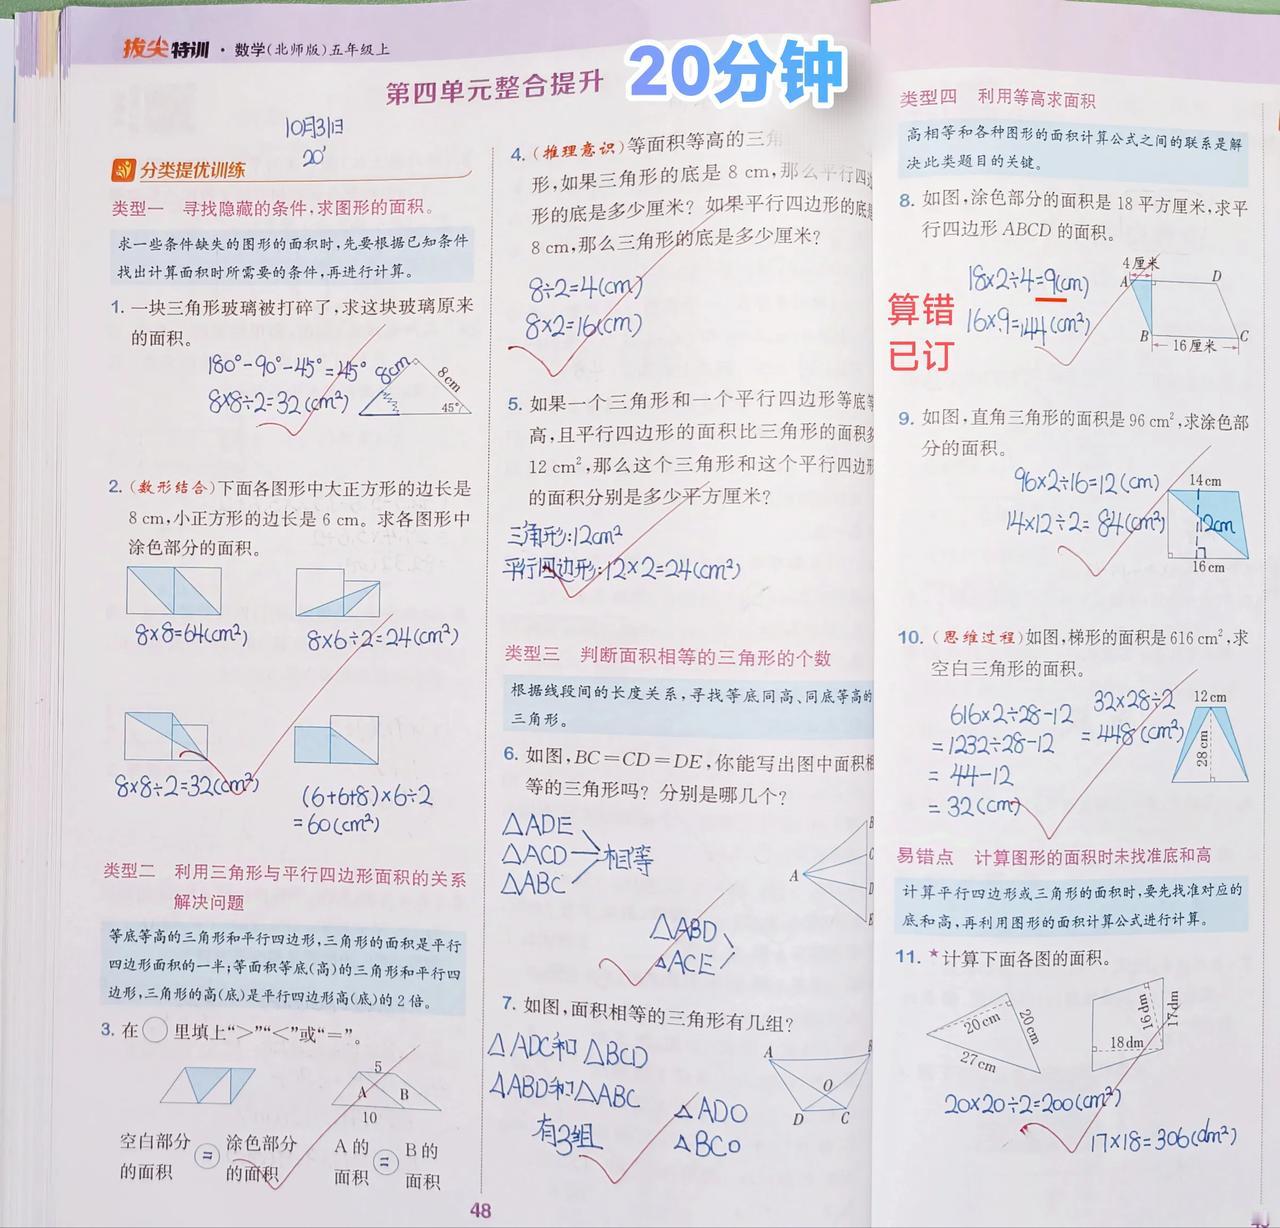 拔尖特训·数学(北师版)五年级上
第四单元整合提升
20分钟
10月31日
20'
分类提优训练
类型一 寻找隐藏的条件,求图形的面积。
求一些条件缺失的图形的面积时,先要根据已知条件
找出计算面积时所需要的条件,再进行计算。
1. 一块三角形玻璃被打碎了,求这块玻璃原来
的面积。
180°-90°-45°=45°
8×8÷2=32(cm²)
8cm
8cm
45°
2. (数形结合)下面各图形中大正方形的边长是
8 cm,小正方形的边长是 6 cm。求各图形中
涂色部分的面积。
8×8=64(cm²)
8×6÷2=24(cm²)
8×8÷2=32(cm²)
(6+6+8)×6÷2
=60(cm²)
类型二 利用三角形与平行四边形面积的关系
解决问题
等底等高的三角形和平行四边形,三角形的面积是平行
四边形面积的一半;等面积等底(高)的三角形和平行四
边形,三角形的高(底)是平行四边形高(底)的2倍。
3. 在○里填上“>”“<”或“=”。
5
A B
10
空白部分的面积 = 涂色部分的面积
A的面积 = B的面积
48
4. (推理意识)等面积等高的三角
形,如果三角形的底是 8 cm,那么平行四边
形的底是多少厘米? 如果平行四边形的底是
8 cm,那么三角形的底是多少厘米?
8÷2=4(cm)
8×2=16(cm)
5. 如果一个三角形和一个平行四边形等底等
高,且平行四边形的面积比三角形的面积多
12 cm²,那么这个三角形和这个平行四边形
的面积分别是多少平方厘米?
三角形:12cm²
平行四边形:12×2=24(cm²)
类型三 判断面积相等的三角形的个数
根据线段间的长度关系,寻找等底同高、同底等高的
三角形。
6. 如图,BC=CD=DE,你能写出图中面积相
等的三角形吗? 分别是哪几个?
△ADE
△ACD 相等
△ABC
△ABD
△ACE
A
B
C
D
E
7. 如图,面积相等的三角形有几组?
△ADC和△BCD
△ABD和△ABC
有3组
△ADO
△BCO
A B
O
D C
类型四 利用等高求面积
高相等和各种图形的面积计算公式之间的联系是解
决此类题目的关键。
8. 如图,涂色部分的面积是 18 平方厘米,求平
行四边形 ABCD 的面积。
18×2÷4=9(cm)
16×9=144(cm²)
算错
已订
4厘米
A D
B C
16厘米
9. 如图,直角三角形的面积是 96 cm²,求涂色部
分的面积。
96×2÷16=12(cm)
14×12÷2=84(cm²)
14cm
12cm
16cm
10. (思维过程)如图,梯形的面积是 616 cm²,求
空白三角形的面积。
616×2÷28-12
=1232÷28-12
=44-12
=32(cm)
32×28÷2
=448(cm²)
12cm
28cm
易错点 计算图形的面积时未找准底和高
计算平行四边形或三角形的面积时,要先找准对应的
底和高,再利用图形的面积计算公式进行计算。
11. ★计算下面各图的面积。
20cm
20cm
27cm
16dm
17dm
18dm
20×20÷2=200(cm²)
17×18=306(dm²)